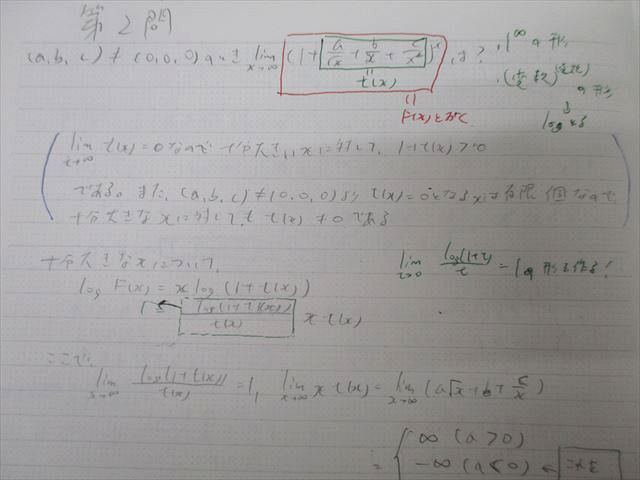 第2問
(a,b,c)≠(0,0,0)のとき lim x→∞ (1+ a/√x + b/x + c/x²)^x は?
t(x)
F(x)とおく
・1^∞の形
・(変数)^(変数)の形
↓
logとる
lim x→∞ t(x)=0なので十分大きいxに対して、1+t(x)>0
である。また、(a,b,c)≠(0,0,0)よりt(x)=0となるxは有限個なので、
十分大きなxに対してもt(x)≠0である
十分大きなxについて、
log F(x)=x log(1+t(x))
lim t→0 log(1+t)/t =1の形を作る!
1 ← log(1+t(x))/t(x) x t(x)
ここで、
lim x→∞ log(1+t(x))/t(x) =1, lim x→∞ x t(x)= lim x→∞ (a√x+b+ c/x)
= { ∞ (a>0)
-∞ (a<0) ←